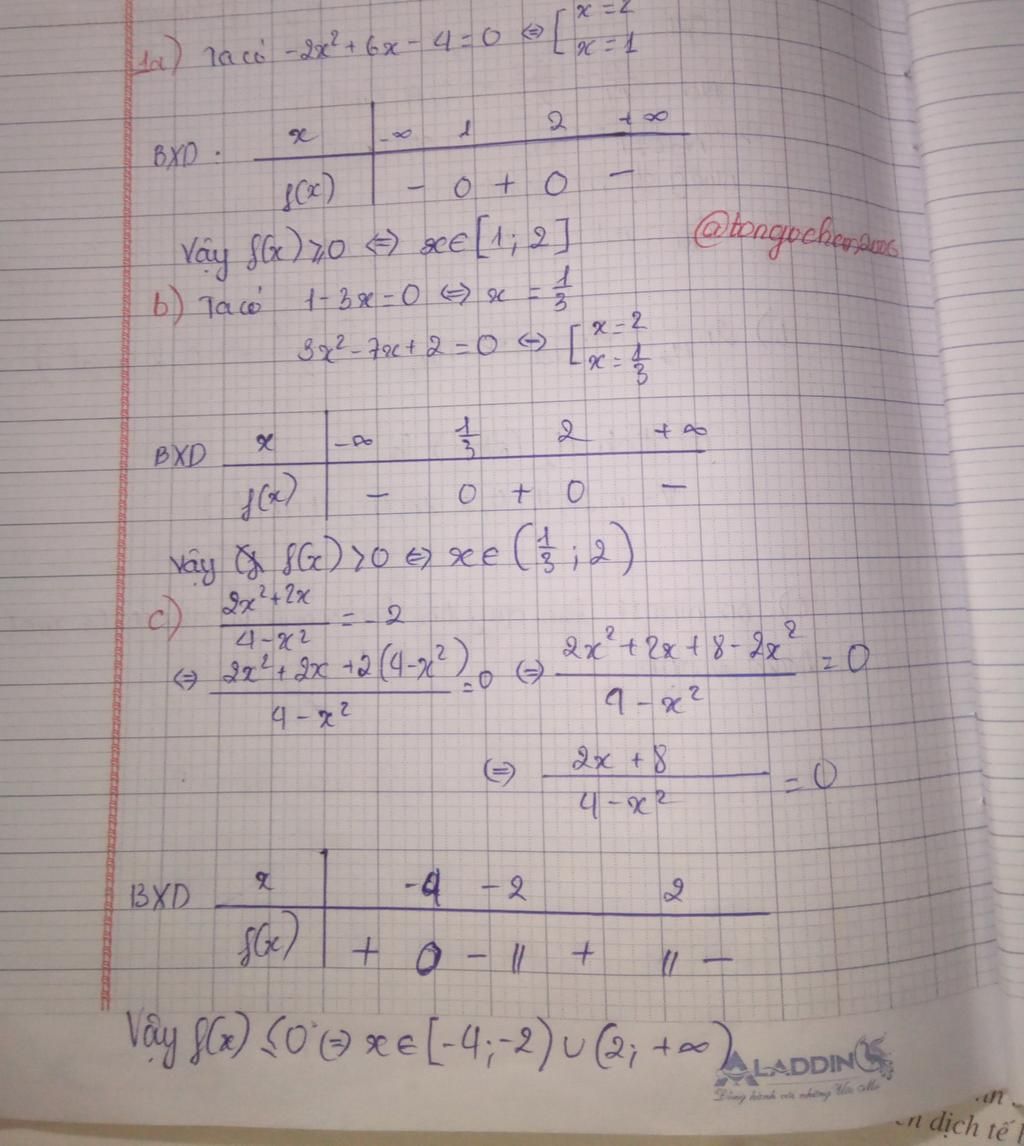 1a) Ta có -2x² + 6x - 4 = 0 ⇔ [ x = 2
x = 1
BXD . x | -∞ 1 2 +∞
f(x) | - 0 + 0 -
Vậy f(x) ≥ 0 ⇔ x ∈ [1; 2]
b) Ta có 1 - 3x = 0 ⇔ x = 1/3
3x² - 7x + 2 = 0 ⇔ [ x = 2
x = 1/3
BXD x | -∞ 1/3 2 +∞
f(x) | - 0 + 0 -
Vậy f(x) > 0 ⇔ x ∈ (1/3 ; 2)
c) (2x² + 2x)/(4 - x²) = -2
⇔ (2x² + 2x + 2(4 - x²))/(4 - x²) = 0 ⇔ (2x² + 2x + 8 - 2x²)/(4 - x²) = 0
⇔ (2x + 8)/(4 - x²) = 0
BXD x | -4 -2 2
f(x) | + 0 - || + || -
Vậy f(x) ≤ 0 ⇔ x ∈ [-4; -2) ∪ (2; +∞)
ALADDIN
Đồng hành với những Ước Mơ
n dịch tế